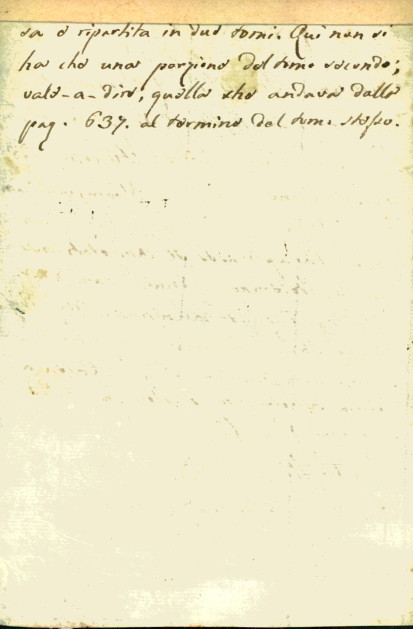 sa è ripartita in due tomi. Qui non si
ha che una porzione del tomo secondo;
vale-a-dire, quella che andava dalla
pag. 637. al termine del tomo stesso.